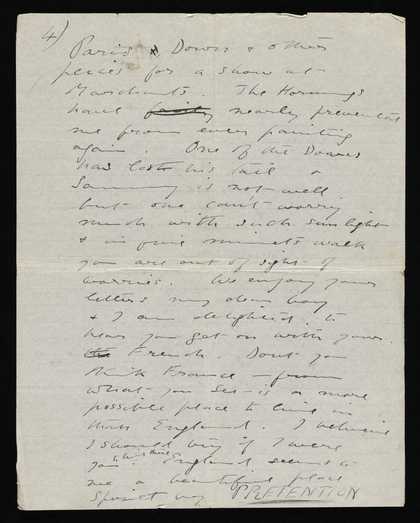 4)
Paris & Downs & other
pieces for a show at
Marchants. The Hornungs
have nearly prevented
me from ever painting
again. One of the Doves
has lost his tail &
Sammy is not well
but one can't worry
much with such sunlight
& in five minutes walk
you are out of sight of
worries. We enjoy your
letters my dear boy
& I am delighted to
hear you get on with your
French. Dont you
think France – from
what you see – is a more
possible place to live in
than England. I believe
I should try if I were
you. England seems to
me a beautiful place
spoilt by PRETENTION